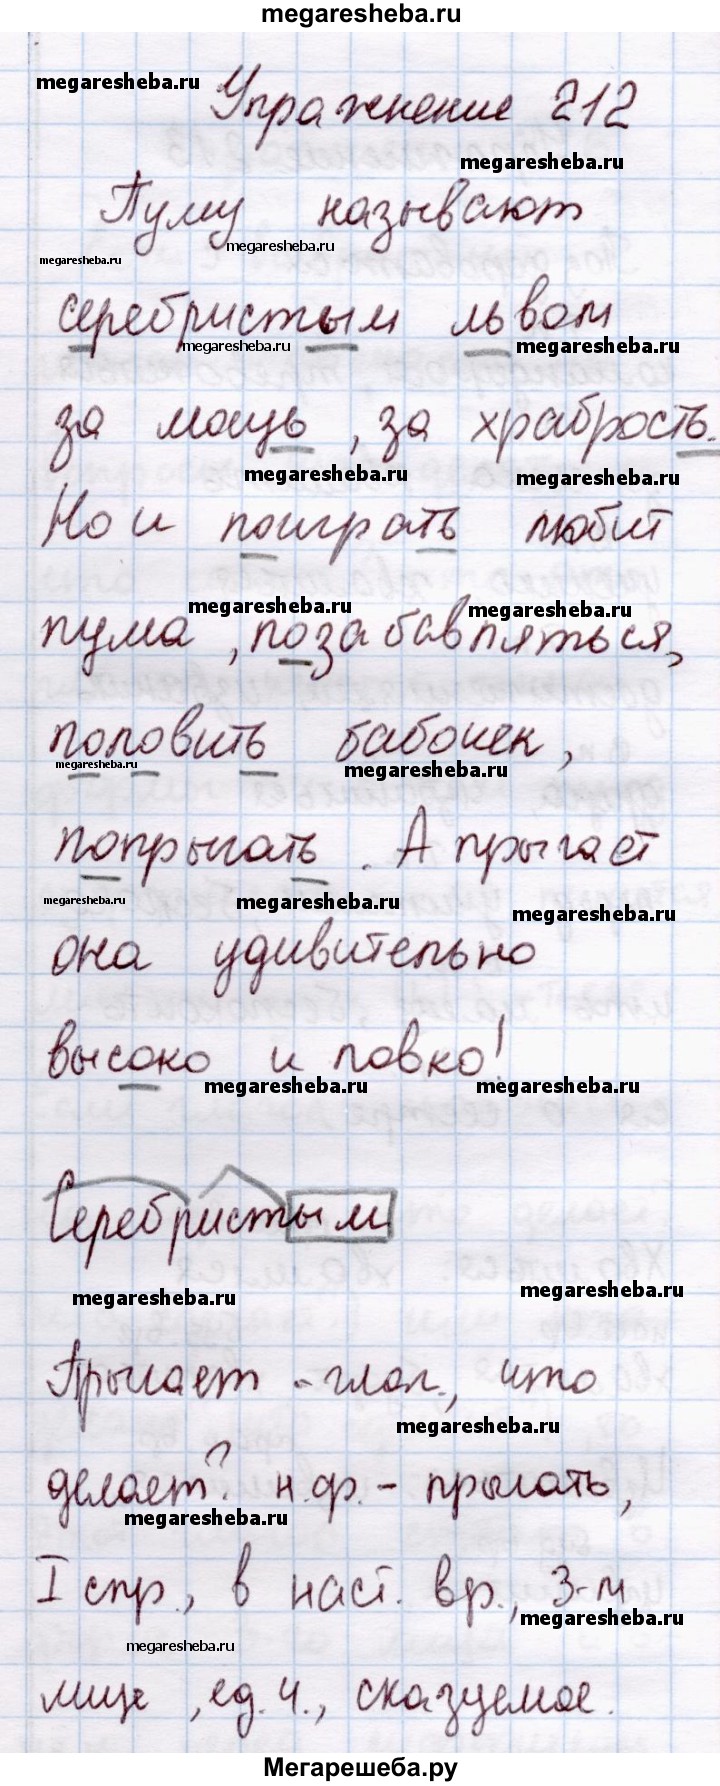 megaresheba.ru
megaresheba.ru
Упражнение 212
megaresheba.ru
Пуму называют
megaresheba.ru
megaresheba.ru
серебристым львом
megaresheba.ru
megaresheba.ru
за мощь, за храбрость.
megaresheba.ru
megaresheba.ru
Но и поиграть любит
megaresheba.ru
megaresheba.ru
пума, позабавляться,
половить бабочек,
megaresheba.ru
megaresheba.ru
попрыгать. А прыгает
megaresheba.ru
megaresheba.ru
megaresheba.ru
она удивительно
высоко и ловко!
megaresheba.ru
megaresheba.ru
Серебристым
megaresheba.ru
megaresheba.ru
Прыгает - глаг., что
megaresheba.ru
делает? н.ф. - прыгать,
megaresheba.ru
I спр., в наст. вр., 3-м
megaresheba.ru
megaresheba.ru
лице, ед.ч., сказуемое.
Мегарешеба.ру